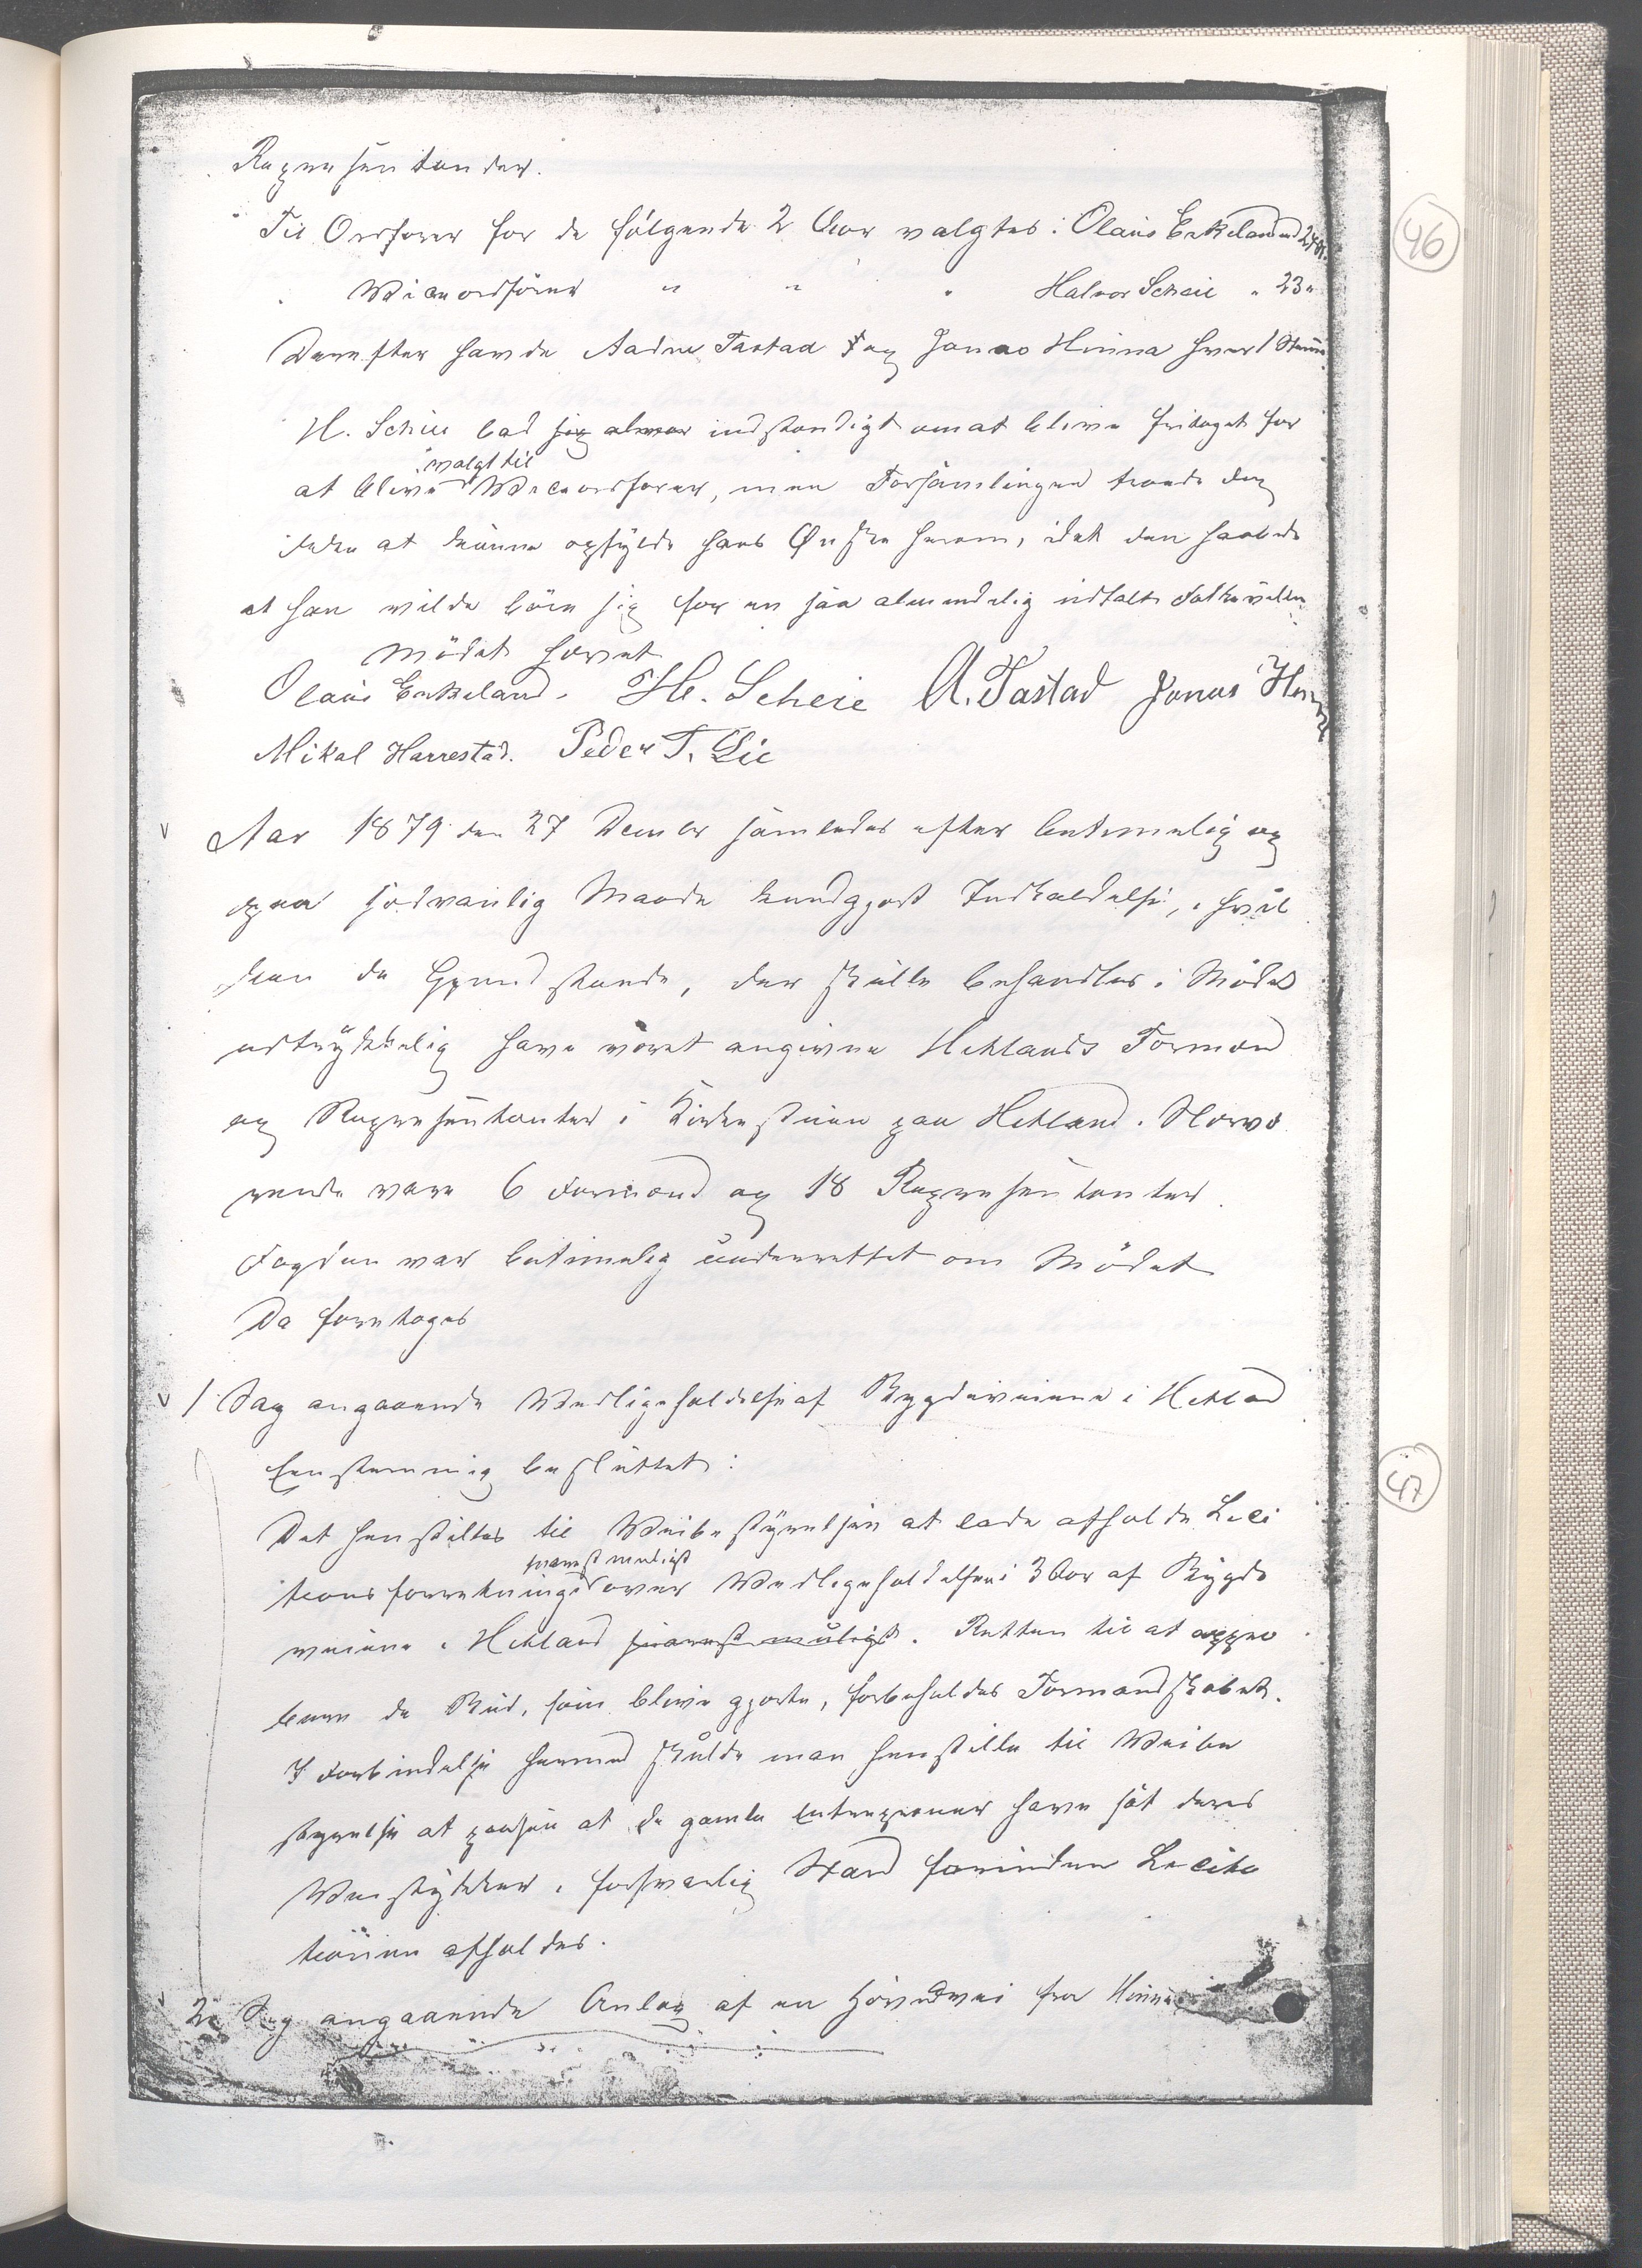 Repræsentanter.
Til Ordfører for de følgende 2 Aar valgtes: Olaus Eskeland med 24 St.
46
Viceordfører " " " Halvor Scheie " 23 "
Derefter havde Aadne Tastad og Jonas Hinna hver 1 Stemme
H. Scheie bad sig indstendigt om at blive fritaget for
valgt til
at blive Viceordfører, men Forsamlingen troede dog
ikke at kunne opfylde hans Ønske herom, idet den haabede
at han vilde böie sig for en saa almindelig udtalt Folkevillie
Mödet hævet
Olaus Eskeland. H. Scheie A. Tastad Jonas Hinna
Mikal Harrestad. Peder T. Lie
v Aar 1879 den 27 Decmbr samledes efter betimelig og
paa sædvanlig Maade kundgjort Indkaldelse, i hvil
ken de Gjenstande, der skulle behandles i Mödet
udtrykkelig have været angivne Hetlands Formænd
og Repræsentanter i Kirkestuen paa Hetland. Nærvæ
rende vare 6 Formænd og 18 Repræsentanter.
Fogden var betimelig underrettet om Mödet
Da foretoges
v 1 Sag angaaende Vedligeholdelse af Bygdeveiene i Hetland
Eenstemmig besluttet:
47
Det henstilles til Veibestyrelsen at lade afholde Lici
snarest muligst
tationsforretninger over Vedligeholdelsen i 3 Aar af Bygde
veiene i Hetland snarest muligst. Retten til at appro
bere de Bud, som blive gjorte, forbeholdes Formandskabet.
I Forbindelse hermed skulde man henstille til Veibe
styrelse at paase at de gamle Entreprenører have sat deres
Veistykker i forsvarlig Stand forinden Licita
tionen afholdes.
2 Sag angaaende Anlæg af en Hovedvei fra Hinna